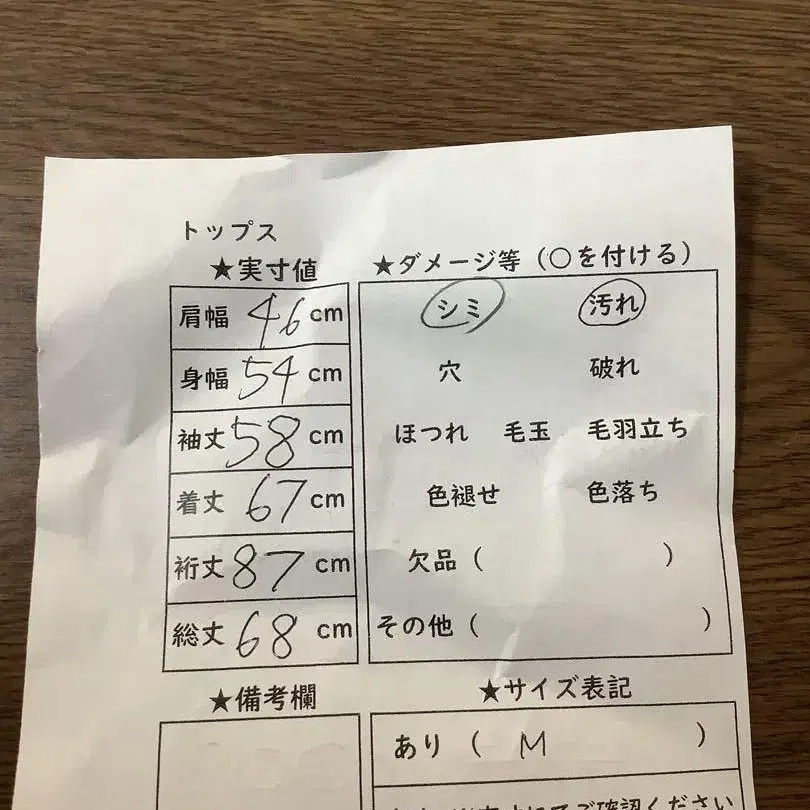 トップス
★実寸値
肩幅 46 cm
身幅 54 cm
袖丈 58 cm
着丈 67 cm
裄丈 87 cm
総丈 68 cm
★ダメージ等（○を付ける）
シミ 汚れ
穴 破れ
ほつれ 毛玉 毛羽立ち
色褪せ 色落ち
欠品（ ）
その他（ ）
★備考欄
★サイズ表記
あり（ M ）
ご確認ください